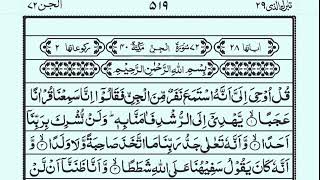 تبٰرك الذی ٢٩ ٥١٩ الجن ٧٢
اٰیاتھا ٢٨ ٧٢ سُوْرَةُ الْجِنِّ مَكِّيَّةٌ ٤٠ رکوعاتھا ٢
بِسْمِ اللّٰهِ الرَّحْمٰنِ الرَّحِيْمِ
قُلْ اُوْحِيَ اِلَيَّ اَنَّهُ اسْتَمَعَ نَفَرٌ مِّنَ الْجِنِّ فَقَالُوْٓا اِنَّا سَمِعْنَا قُرْاٰنًا
عَجَبًا ۙ يَّهْدِيْٓ اِلَى الرُّشْدِ فَاٰمَنَّا بِهٖ ؕ وَلَنْ نُّشْرِكَ بِرَبِّنَآ
اَحَدًا ۙ وَّاَنَّهٗ تَعٰلٰى جَدُّ رَبِّنَا مَا اتَّخَذَ صَاحِبَةً وَّلَا وَلَدًا ۙ وَّ
اَنَّهٗ كَانَ يَقُوْلُ سَفِيْهُنَا عَلَى اللّٰهِ شَطَطًا ۙ وَّاَنَّا ظَنَنَّآ اَنْ لَّنْ